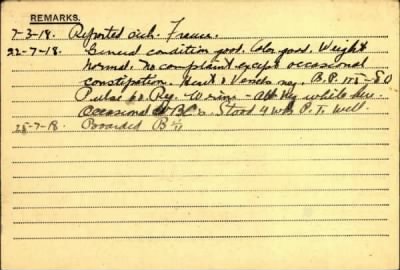 REMARKS.
7-3-18. Reported sick. France.
22-7-18. General condition good. Color good. Weight
normal. No complaint except occasional
constipation. Heart & neg. B.P. 80
Pulse Reg. Urine - neg while here.
Occasional W B C's. Stood 4 wks P.T. well.
25-7-18. Boarded B ii